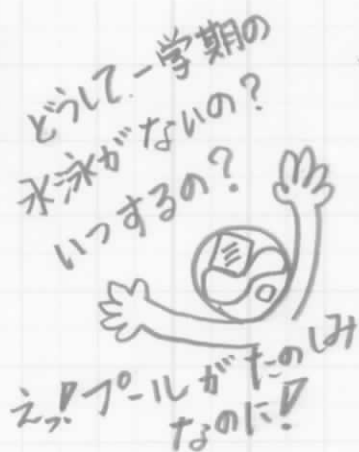 どうして一学期の
水泳がないの?
いつするの?
えっ!プールがたのしみ
なのに!